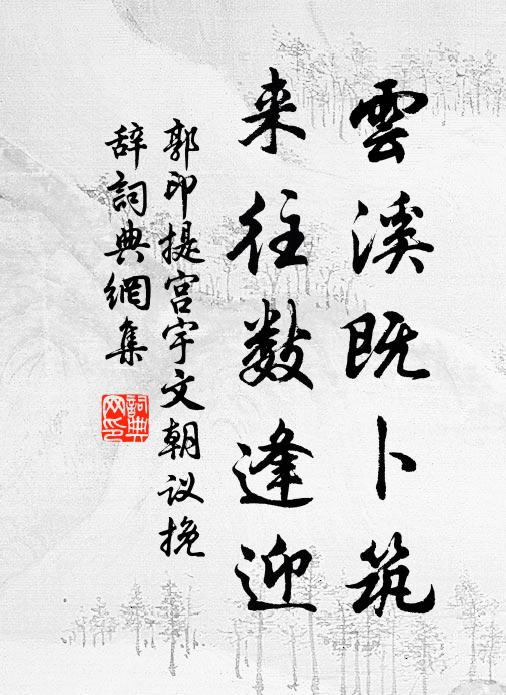 雲溪既卜筑
来往数逢迎
郭印提宫宇文朝议挽
辞詞典網集
詞典网印